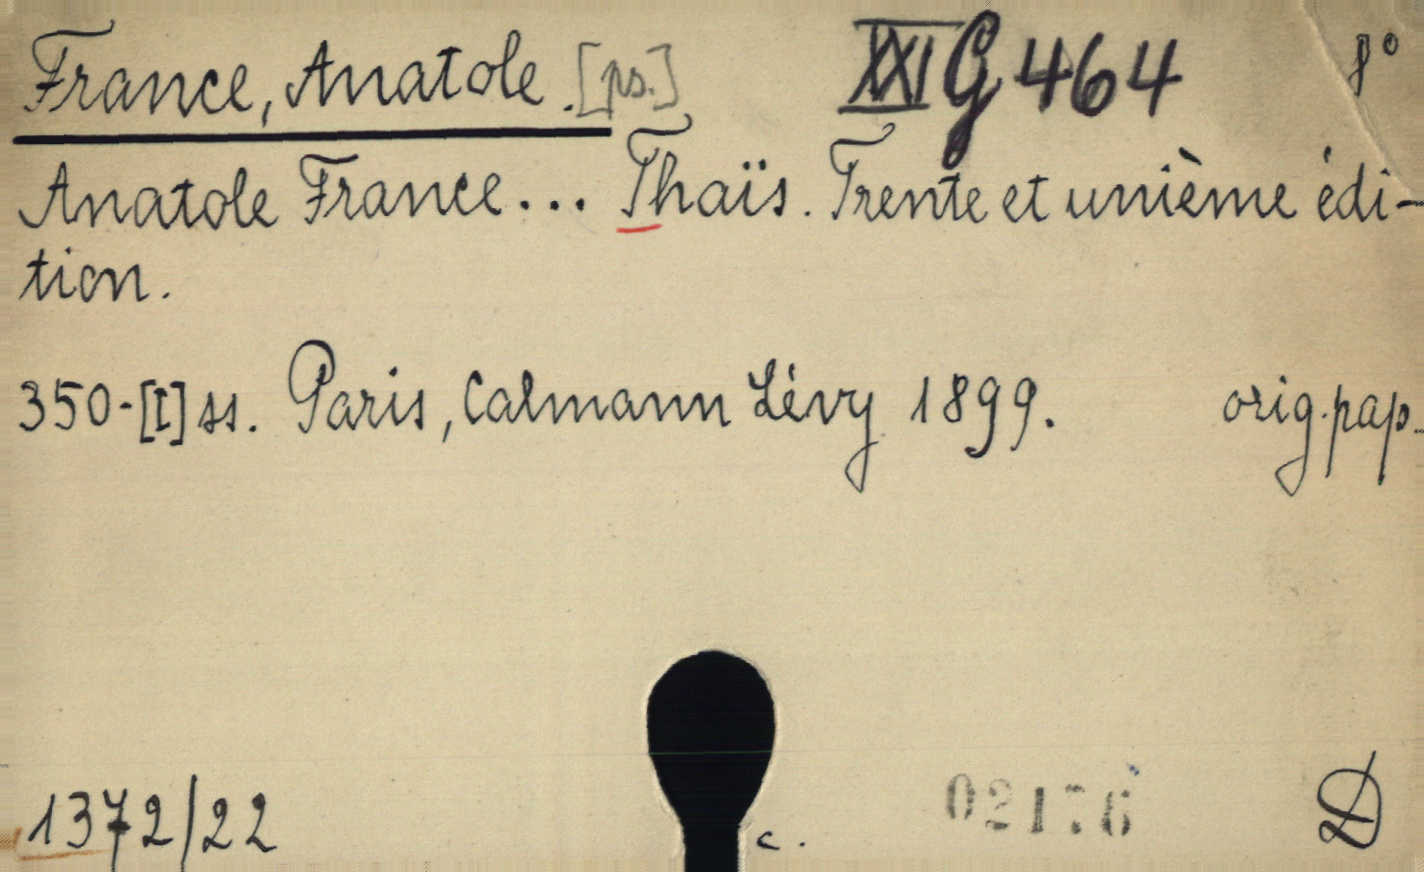 France, Anatole. [ps.] XXI G 464 8°
Anatole France... Thaïs. Trente et unième édi-
tion.
350-[I] ss. Paris, Calmann Lévy 1899. orig. pap.
1372/22 c. 02176 D